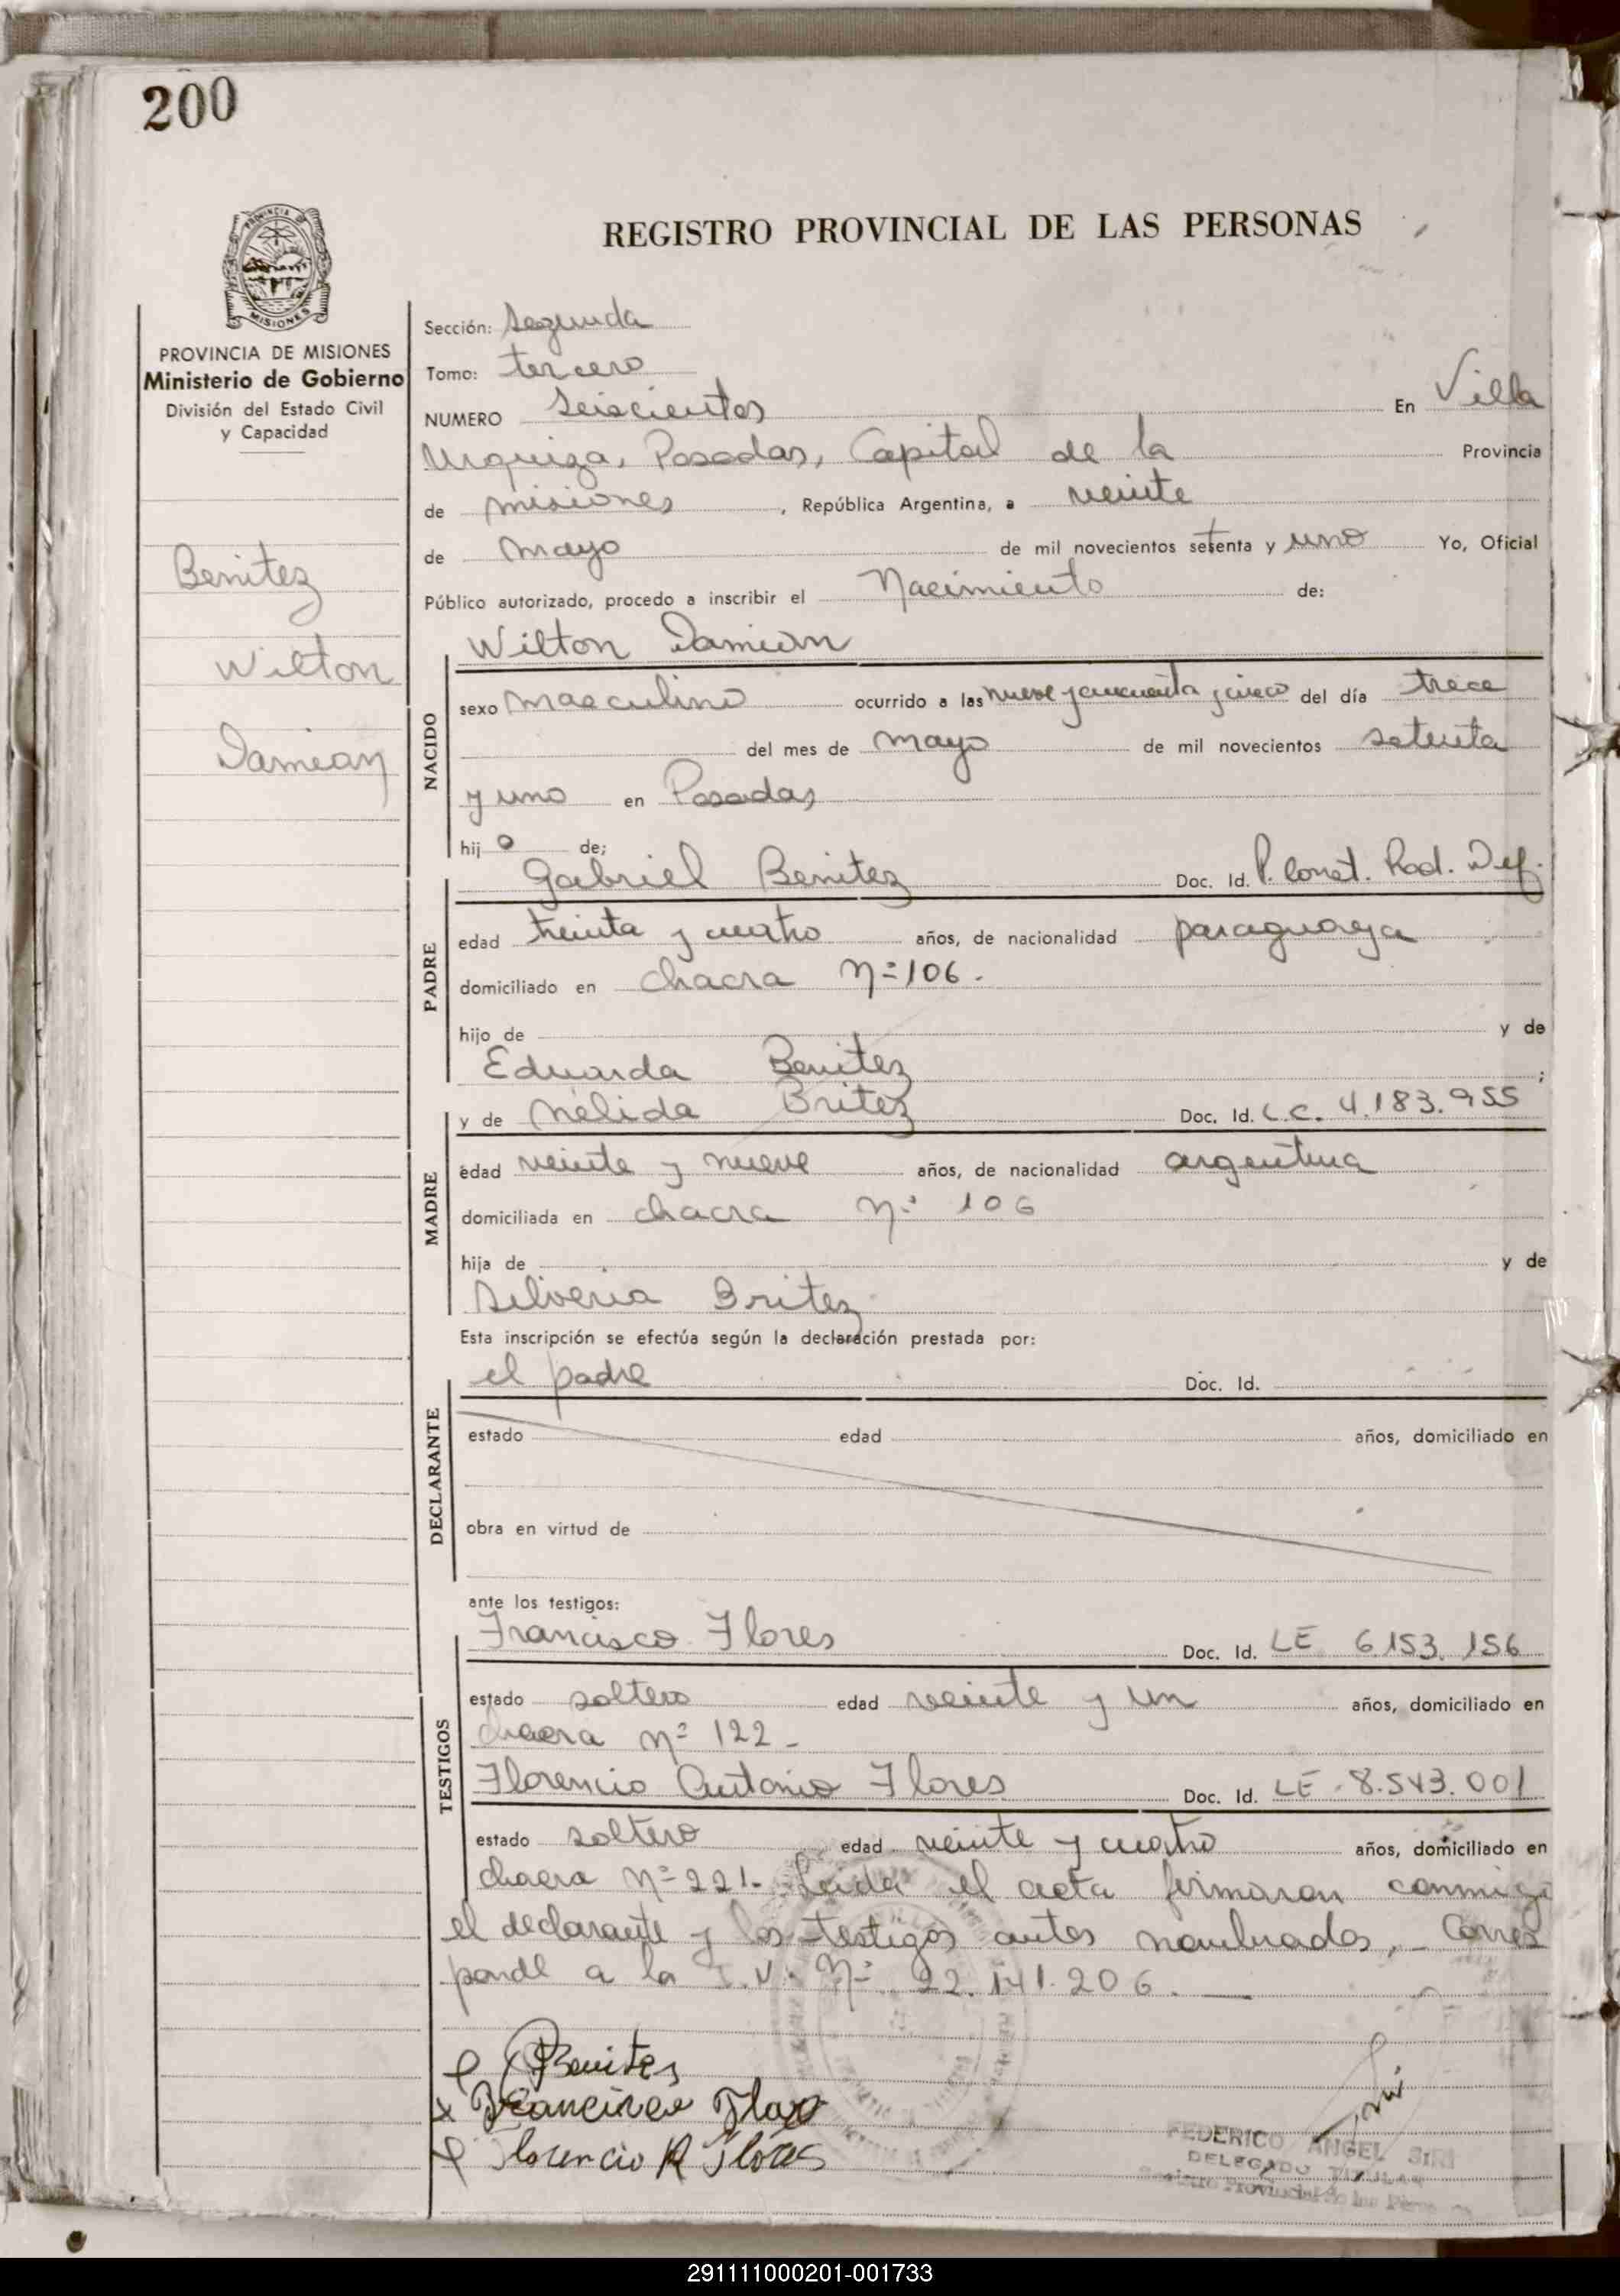 200
PROVINCIA DE MISIONES
REGISTRO PROVINCIAL DE LAS PERSONAS
PROVINCIA DE MISIONES
Ministerio de Gobierno
División del Estado Civil
y Capacidad
Benitez
Wilton
Damian
Sección: Segunda
Tomo: tercero
NUMERO Seiscientos En Villa
Urquiza, Posadas, Capital de la Provincia
de misiones, República Argentina, a veinte
de mayo de mil novecientos setenta y uno Yo, Oficial
Público autorizado, procedo a inscribir el Nacimiento de:
Wilton Damian
NACIDO
sexo masculino ocurrido a las nueve y cincuenta y cinco del día trece
del mes de mayo de mil novecientos setenta
y uno en Posadas
hij o de;
Gabriel Benitez Doc. Id. P. Const. Rad. Def.
PADRE
edad treinta y cuatro años, de nacionalidad paraguaya
domiciliado en chacra Nº 106.
hijo de y de
Eduarda Benitez ;
y de Nélida Britez Doc. Id. L.C. 4.183.955
MADRE
edad veinte y nueve años, de nacionalidad argentina
domiciliada en chacra Nº 106
hija de y de
Silveria Britez
Esta inscripción se efectúa según la declaración prestada por:
el padre Doc. Id.
DECLARANTE
estado edad años, domiciliado en
obra en virtud de
ante los testigos:
Francisco Flores Doc. Id. LE 6.153.156
TESTIGOS
estado soltero edad veinte y un años, domiciliado en
chacra nº 122 -
Florencio Antonio Flores Doc. Id. LE 8.543.001
estado soltero edad veinte y cuatro años, domiciliado en
chacra Nº 221. Leida el acta firmaron conmigo
el declarante y los testigos antes nombrados, - Corres
ponde a la Nº 22.141.206.
Benites
Francisco Flores
Florencio A Flores
FEDERICO ANGEL SIRI
DELEGADO TITULAR
Registro Provincial de las Personas
291111000201-001733